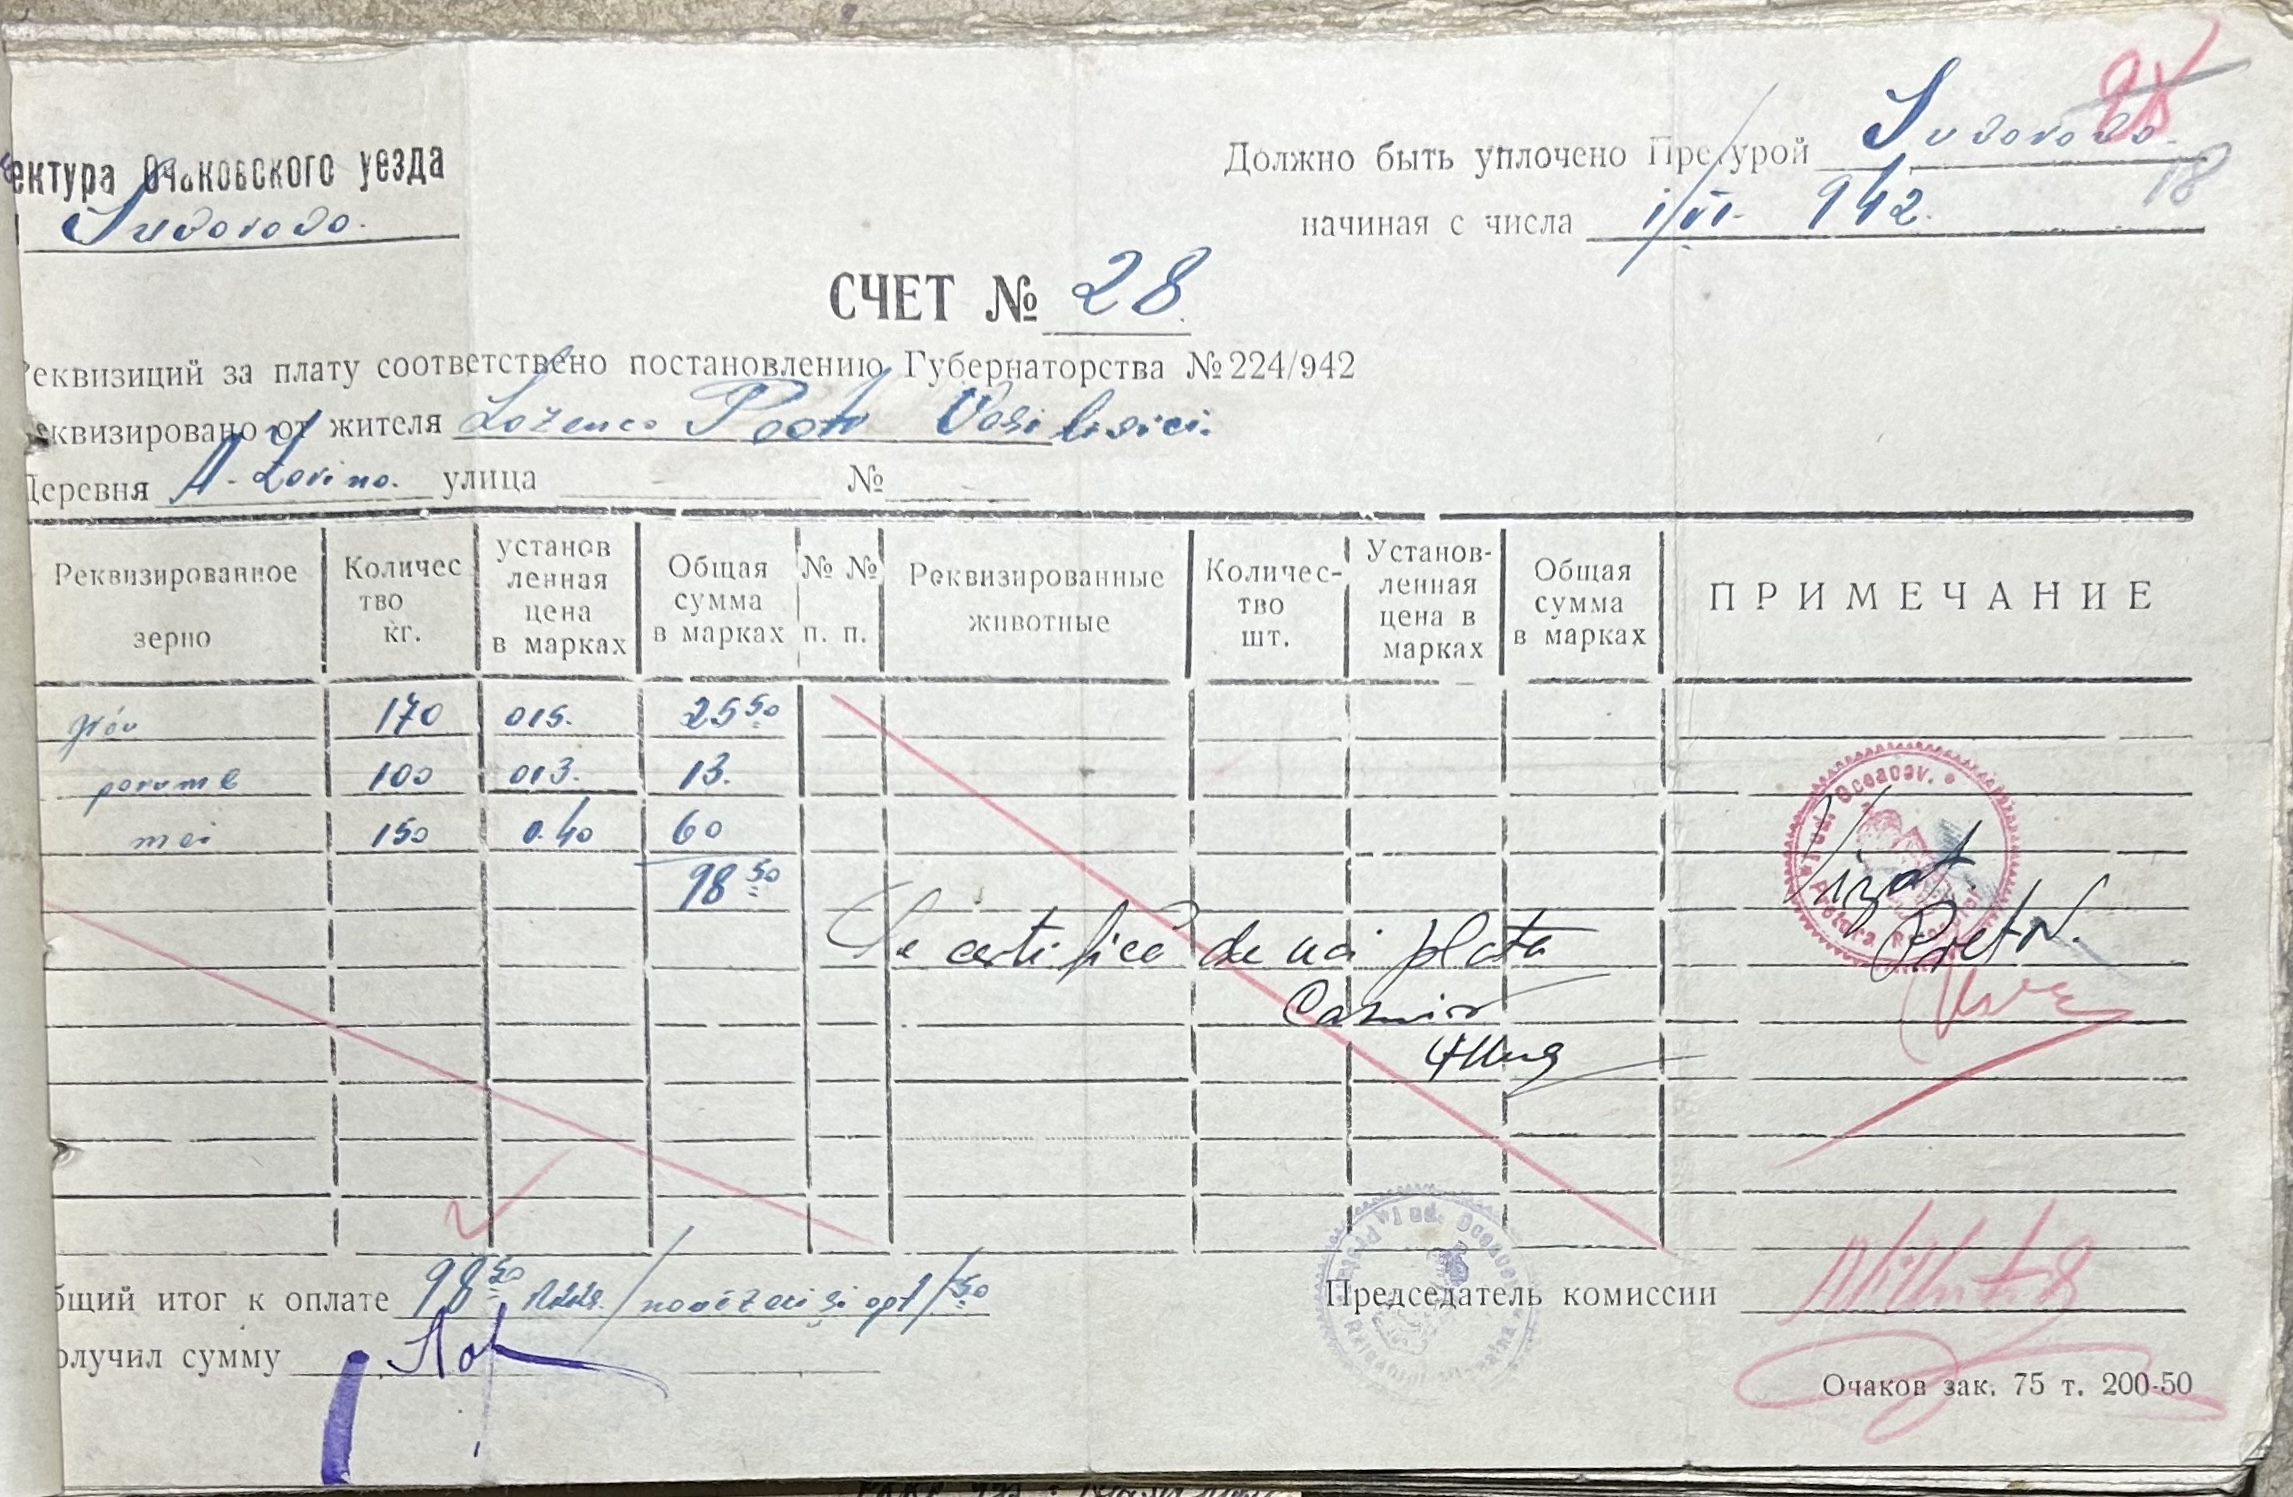 ектура Очаковского уезда
Suvorovo.
Должно быть уплочено Претурой Suvorovo.
начиная с числа 1/VI- 942.
28
18
СЧЕТ № 28
Реквизиций за плату соответствено постановлению Губернаторства № 224/942
еквизировано от жителя Lozenco Vasilievici.
Деревня A-Zorino. улица №
Реквизированное зерно | Количес тво кг. | установ ленная цена в марках | Общая сумма в марках | № № п. п. | Реквизированные животные | Количес- тво шт. | Установ- ленная цена в марках | Общая сумма в марках | ПРИМЕЧАНИЕ
grâu 170 015. 25 50
porumb 100 013. 13.
mei 150 0.40 60
98 50
Jud. Oceacov.
Vizat
Pretura
Pret N.
Se certifică de noi plata
Casier
общий итог к оплате 98 50 /nouăzeci și opt/50
олучил сумму
Jud. Oceacov
Председатель комиссии
Очаков зак. 75 т. 200-50